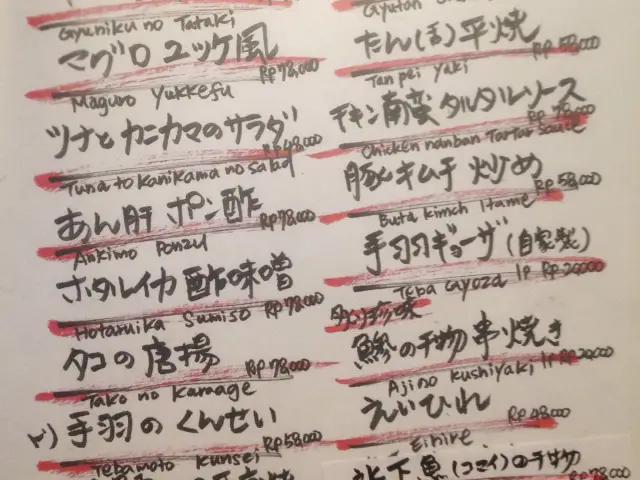 Gyuniku no Tataki
マグロユッケ風
Rp 78,000
Maguro Yukkefu
ツナとカニカマのサラダ
Rp 48,000
Tuna to Kanikama no salad
あん肝ポン酢
Rp 78,000
Ankimo Ponzu
ホタルイカ酢味噌
Rp 78,000
Hotaruika Sumiso
タコの唐揚
Rp 78,000
Tako no Karaage
手羽のくんせい
Rp 58,000
Tebamoto Kunsei
たん(ほ)平焼
Rp 58,000
Tanpei Yaki
チキン南蛮タルタルソース
Rp 78,000
Chicken nanban Tartar sauce
豚キムチ炒め
Rp 58,000
Buta kimch Itame
手羽ギョーザ(自家製)
1P Rp 20000
Teba Gyoza
珍味
鯵の干物串焼き
1P Rp 20,000
Ajino Kushiyaki
えいひれ
Rp 48,000
Eihire
氷下魚(コマイ)の干物
Rp 78,000